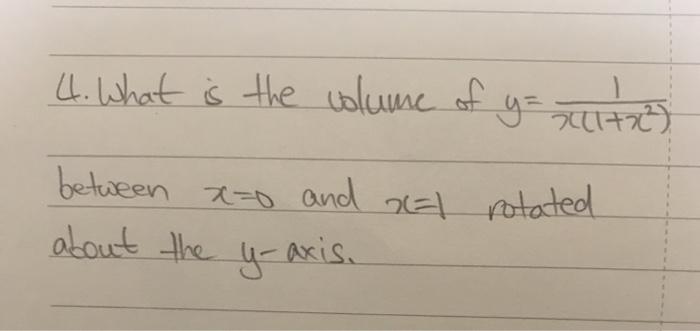 4. What is the volume of y= 1/x(1+x²)
between x=0 and x=1 rotated
about the y-axis.